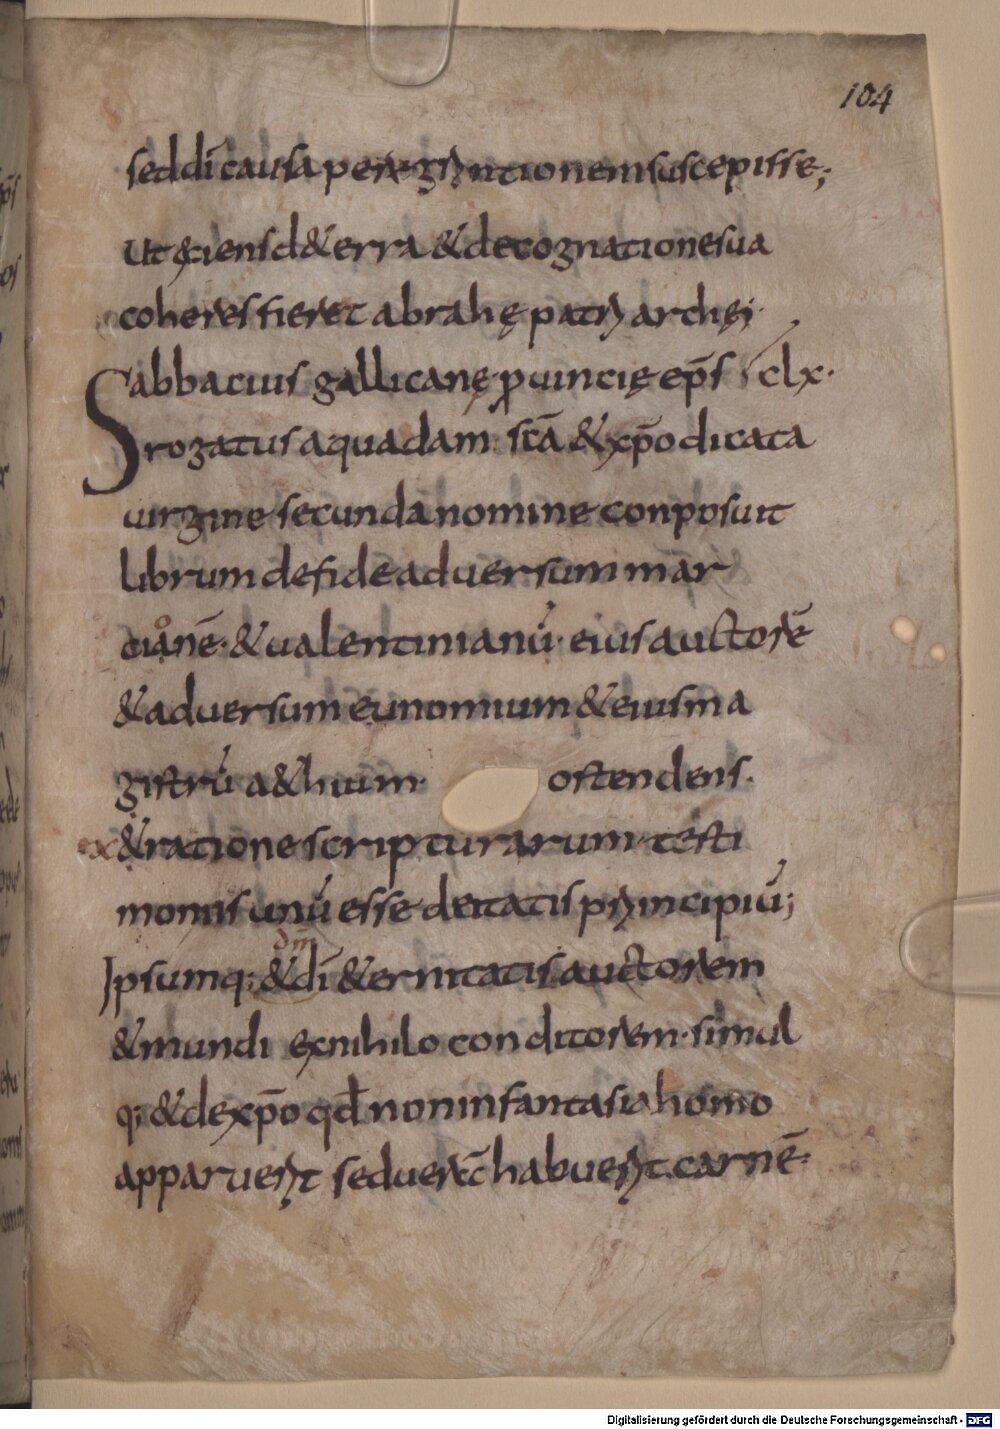 104
sed dī causa peregrintionem suscepisse;
Ut exiens d&erra & de cognatione sua
coheres fieret abrahę patriarchęi·
Sabbacius gallicanę prouincię ep̄s clx·
rogatus a quadam scā & xp̄o dicata
uirgine secunda nomine conposuit
librum de fide aduersum mar
cionē· & ualentinianū· eius auctorē
& aduersum eunomium & eius ma
gistrū a&hium· ostendens·
ex & ratione scripturarum testi
moniis unū esse deitatis principiū;
dm̄
Ipsumq; & dī &ernitatis auctorem
& mundi ex nihilo conditorem· simul
q; & de xp̄o qd̄ non in fantasia homo
apparuerit sed uerā habuerit carnē·
Digitalisierung gefördert durch die Deutsche Forschungsgemeinschaft - DFG